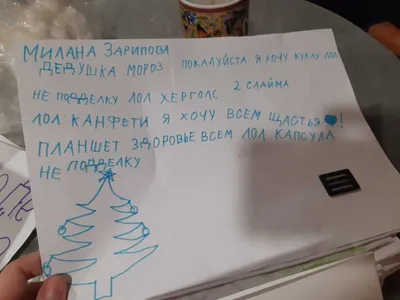 МИЛАНА ЗАРИПОВА
ДЕДУШКА МОРОЗ ПОЖАЛУЙСТА Я ХОЧУ КУКЛУ ЛОЛ
НЕ ПОДДЕЛКУ ЛОЛ ХЕРГОЛС 2 СЛАЙМА
ЛОЛ КАНФЕТИ Я ХОЧУ ВСЕМ ЩАСТЬЯ !
ПЛАНШЕТ ЗДОРОВЬЕ ВСЕМ ЛОЛ КАПСУЛА
НЕ ПОДДЕЛКУ